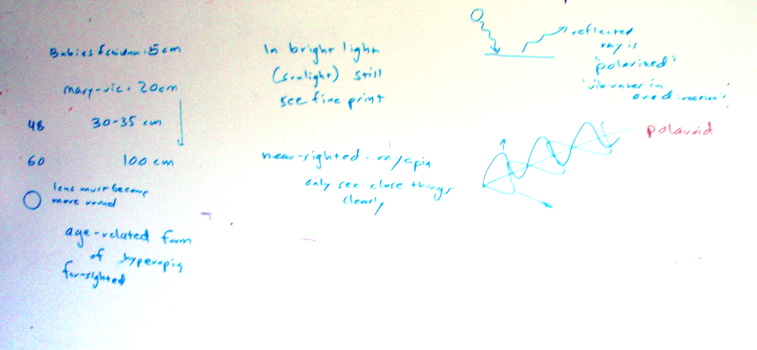 Babies 5cm
20cm
48 30-35 cm
60 100 cm
lens must become
more round
age-related form
of hyperopia
far-sighted
In bright light
(sunlight) still
see fine print
near-sighted - myopia
only see close things
clearly
reflected
ray is
"polarized"
vibrates in
one direction
polaroid